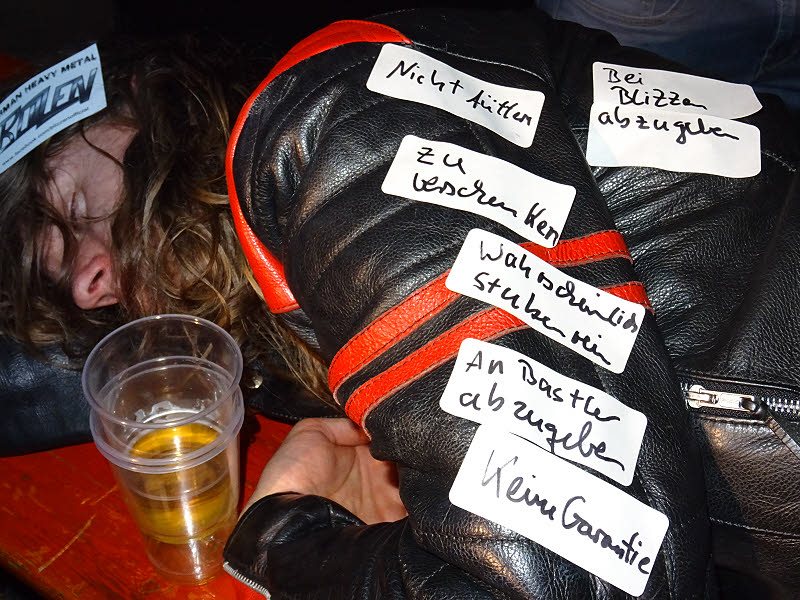 HEAVY METAL
Nicht füttern
Bei
Blizzen
abzugeben
zu
verschenken
Wahrscheinlich
stubenrein
An Bastler
abzugeben
Keine Garantie